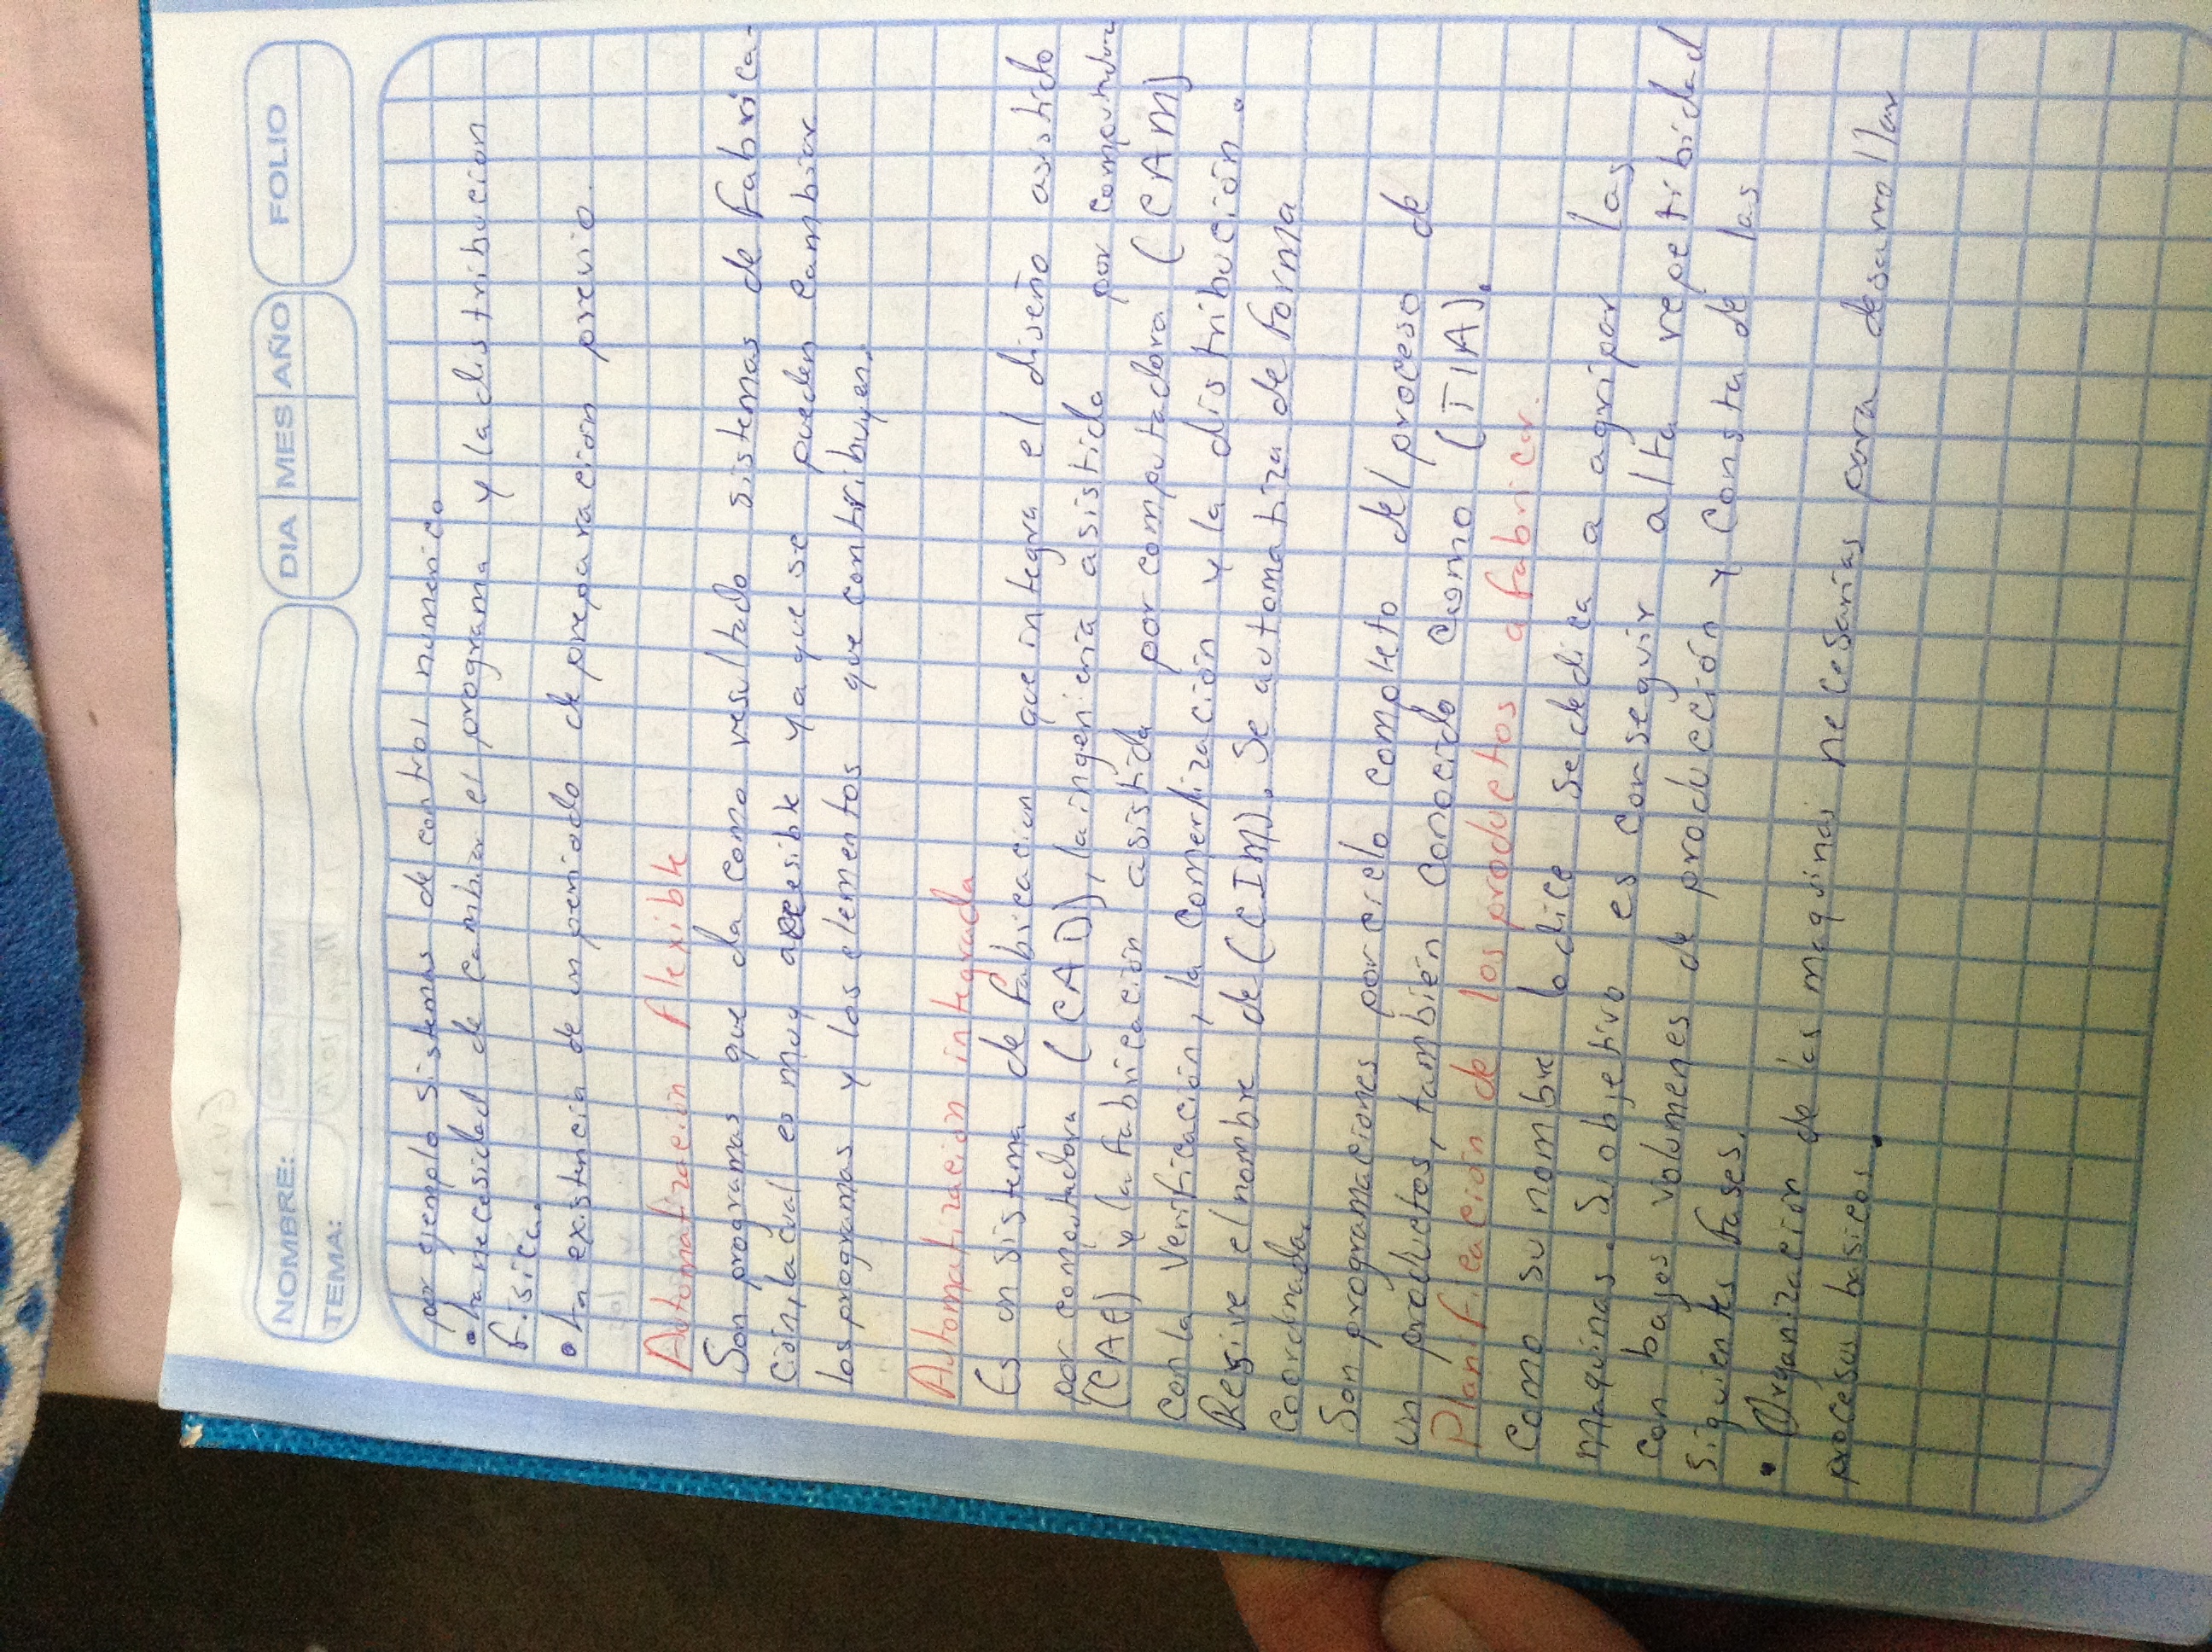 NOMBRE:
TEMA:
DIA MES AÑO
FOLIO
por ejemplo sistemas de control numerico
• La necesidad de cambiar el programa y la distribucion
fisica.
• La existencia de un periodo de preparación previo.
Automatización flexible
Son programas que da como resultado sistemas de fabrica-
ción, la cual es muy accesible ya que se pueden cambiar
los programas y los elementos que contribuyen.
Automatización integrada
Es un sistema de fabricacion que integra el diseño asistido
por computadora (CAD), la ingenieria asistida por computadora
(CAE) y la fabricación asistida por computadora (CAM)
con la verificación, la comerlización y la distribución.
Resive el nombre de (CIM). Se automatiza de forma
coordinada.
Son programaciones por ciclo completo del proceso de
un productos, también conocido como (TIA).
Planificación de los productos a fabricar.
Como su nombre lo dice se dedica a agripar las
maquinas. Su objetivo es conseguir alta repetibidad
con bajos volumenes de producción y consta de las
siguientes fases.
• Organización de las maquinas necesarias para desarrollar
procesos basicos.